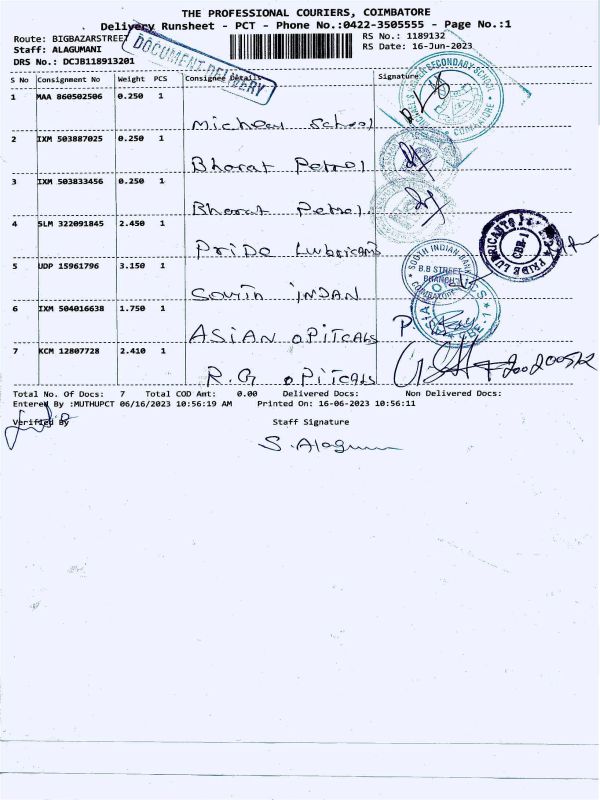 THE PROFESSIONAL COURIERS, COIMBATORE
Delivery Runsheet - PCT - Phone No.:0422-3505555 - Page No.:1
Route: BIGBAZARSTREET
RS No.: 1189132
Staff: ALAGUMANI
RS Date: 16-Jun-2023
DRS No.: DCJB118913201
DOCUMENT DELIVERY
S No Consignment No Weight PCS Consignee Details Signature
1 MAA 860502506 0.250 1
Micheal School
2 IXM 503887025 0.250 1
Bharat Petrol
3 IXM 503833456 0.250 1
Bharat Petrol
4 SLM 322091845 2.450 1
Pride Lubricants
5 UDP 15961796 3.150 1
South INDAN
6 IXM 504016638 1.750 1
ASIAN OPITCALS
7 KCM 12807728 2.410 1
R.G OPiTCALS
SECONDARY SCHOOL
COIMBATORE
PRIDE LUBRICANTS
CBE-1
SOUTH INDIAN BANK
B.B STREET
BRANCH
COIMBATORE
CBE-1
Total No. Of Docs: 7 Total COD Amt: 0.00 Delivered Docs: Non Delivered Docs:
Entered By :MUTHUPCT 06/16/2023 10:56:19 AM Printed On: 16-06-2023 10:56:11
Verified By Staff Signature
S. Alagumani